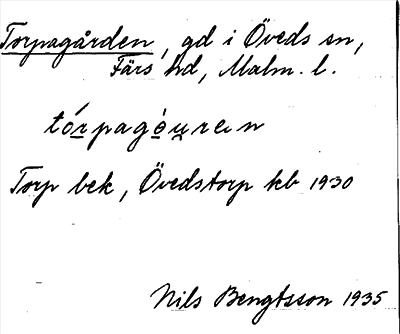 Torpagården, gd i Öveds sn,
Färs hd, Malm. l.
tórpagǫu̯ren
Torp bek, Övedstorp kb 1930
Nils Bengtsson 1935